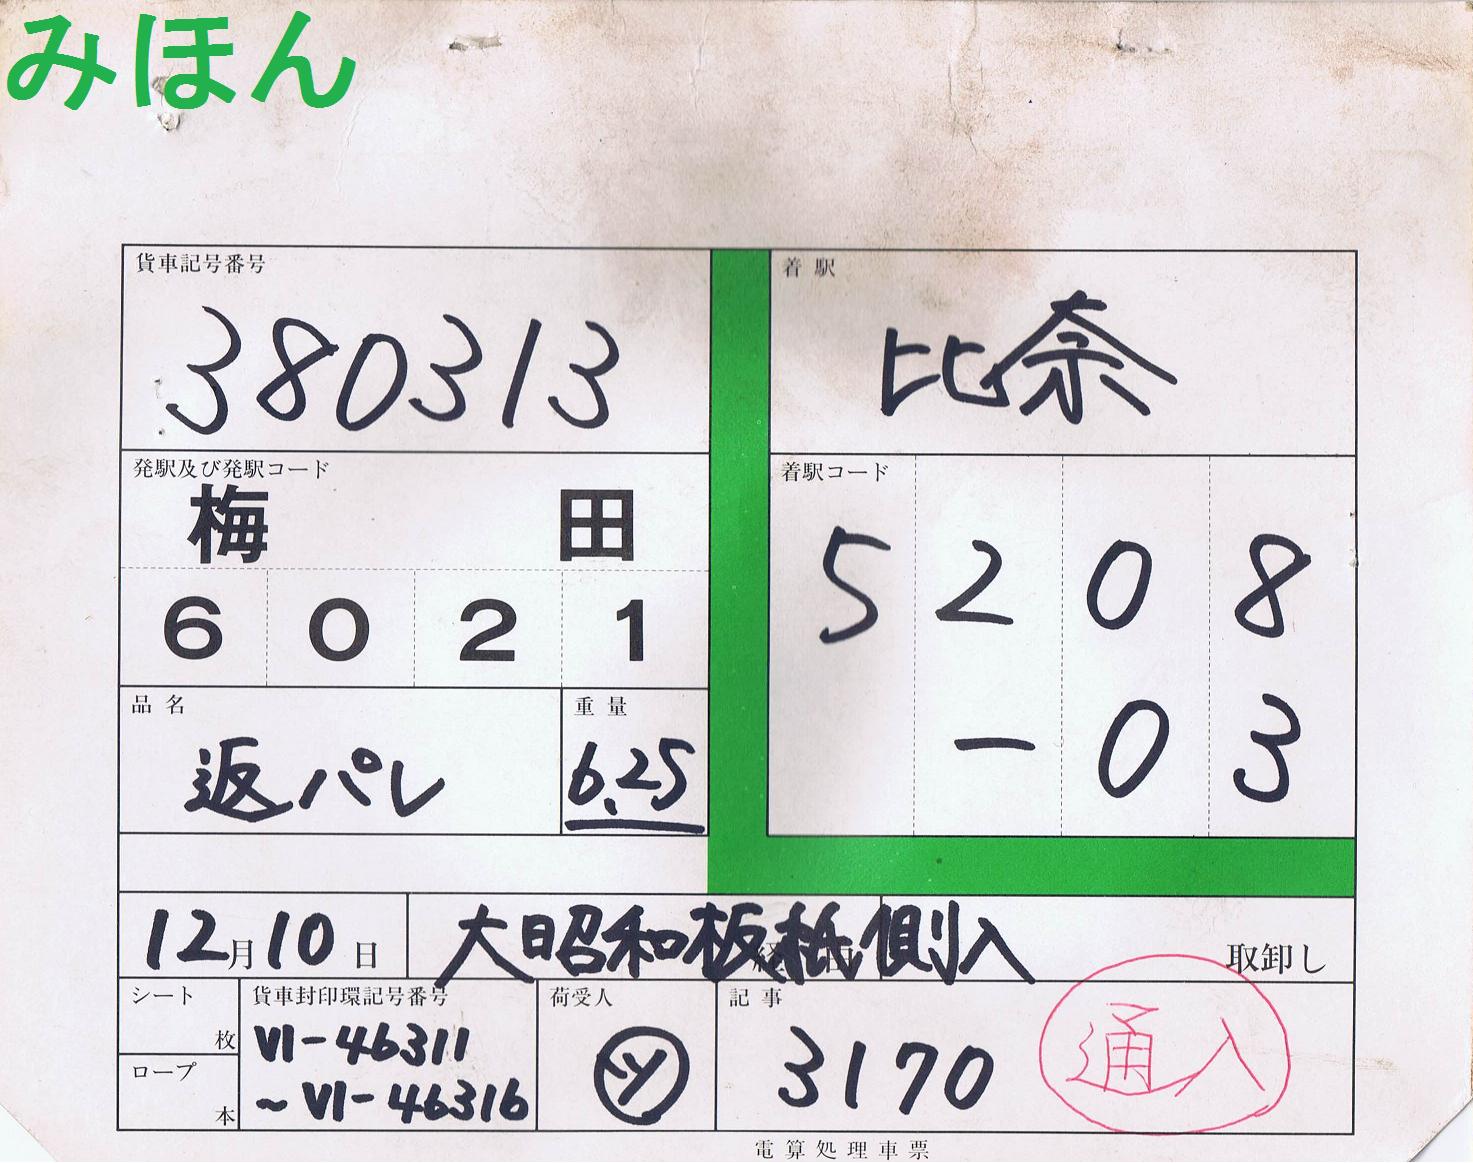 みほん
貨車記号番号
380313
着駅
比奈
発駅及び発駅コード
梅田
6021
着駅コード
5208
-03
品名
返パレ
重量
6.25
12月10日
大昭和板紙側入
取卸し
シート
枚
ロープ
本
貨車封印環記号番号
VI-46311
～VI-46316
荷受人
ツ
記事
3170
通入
電算処理車票